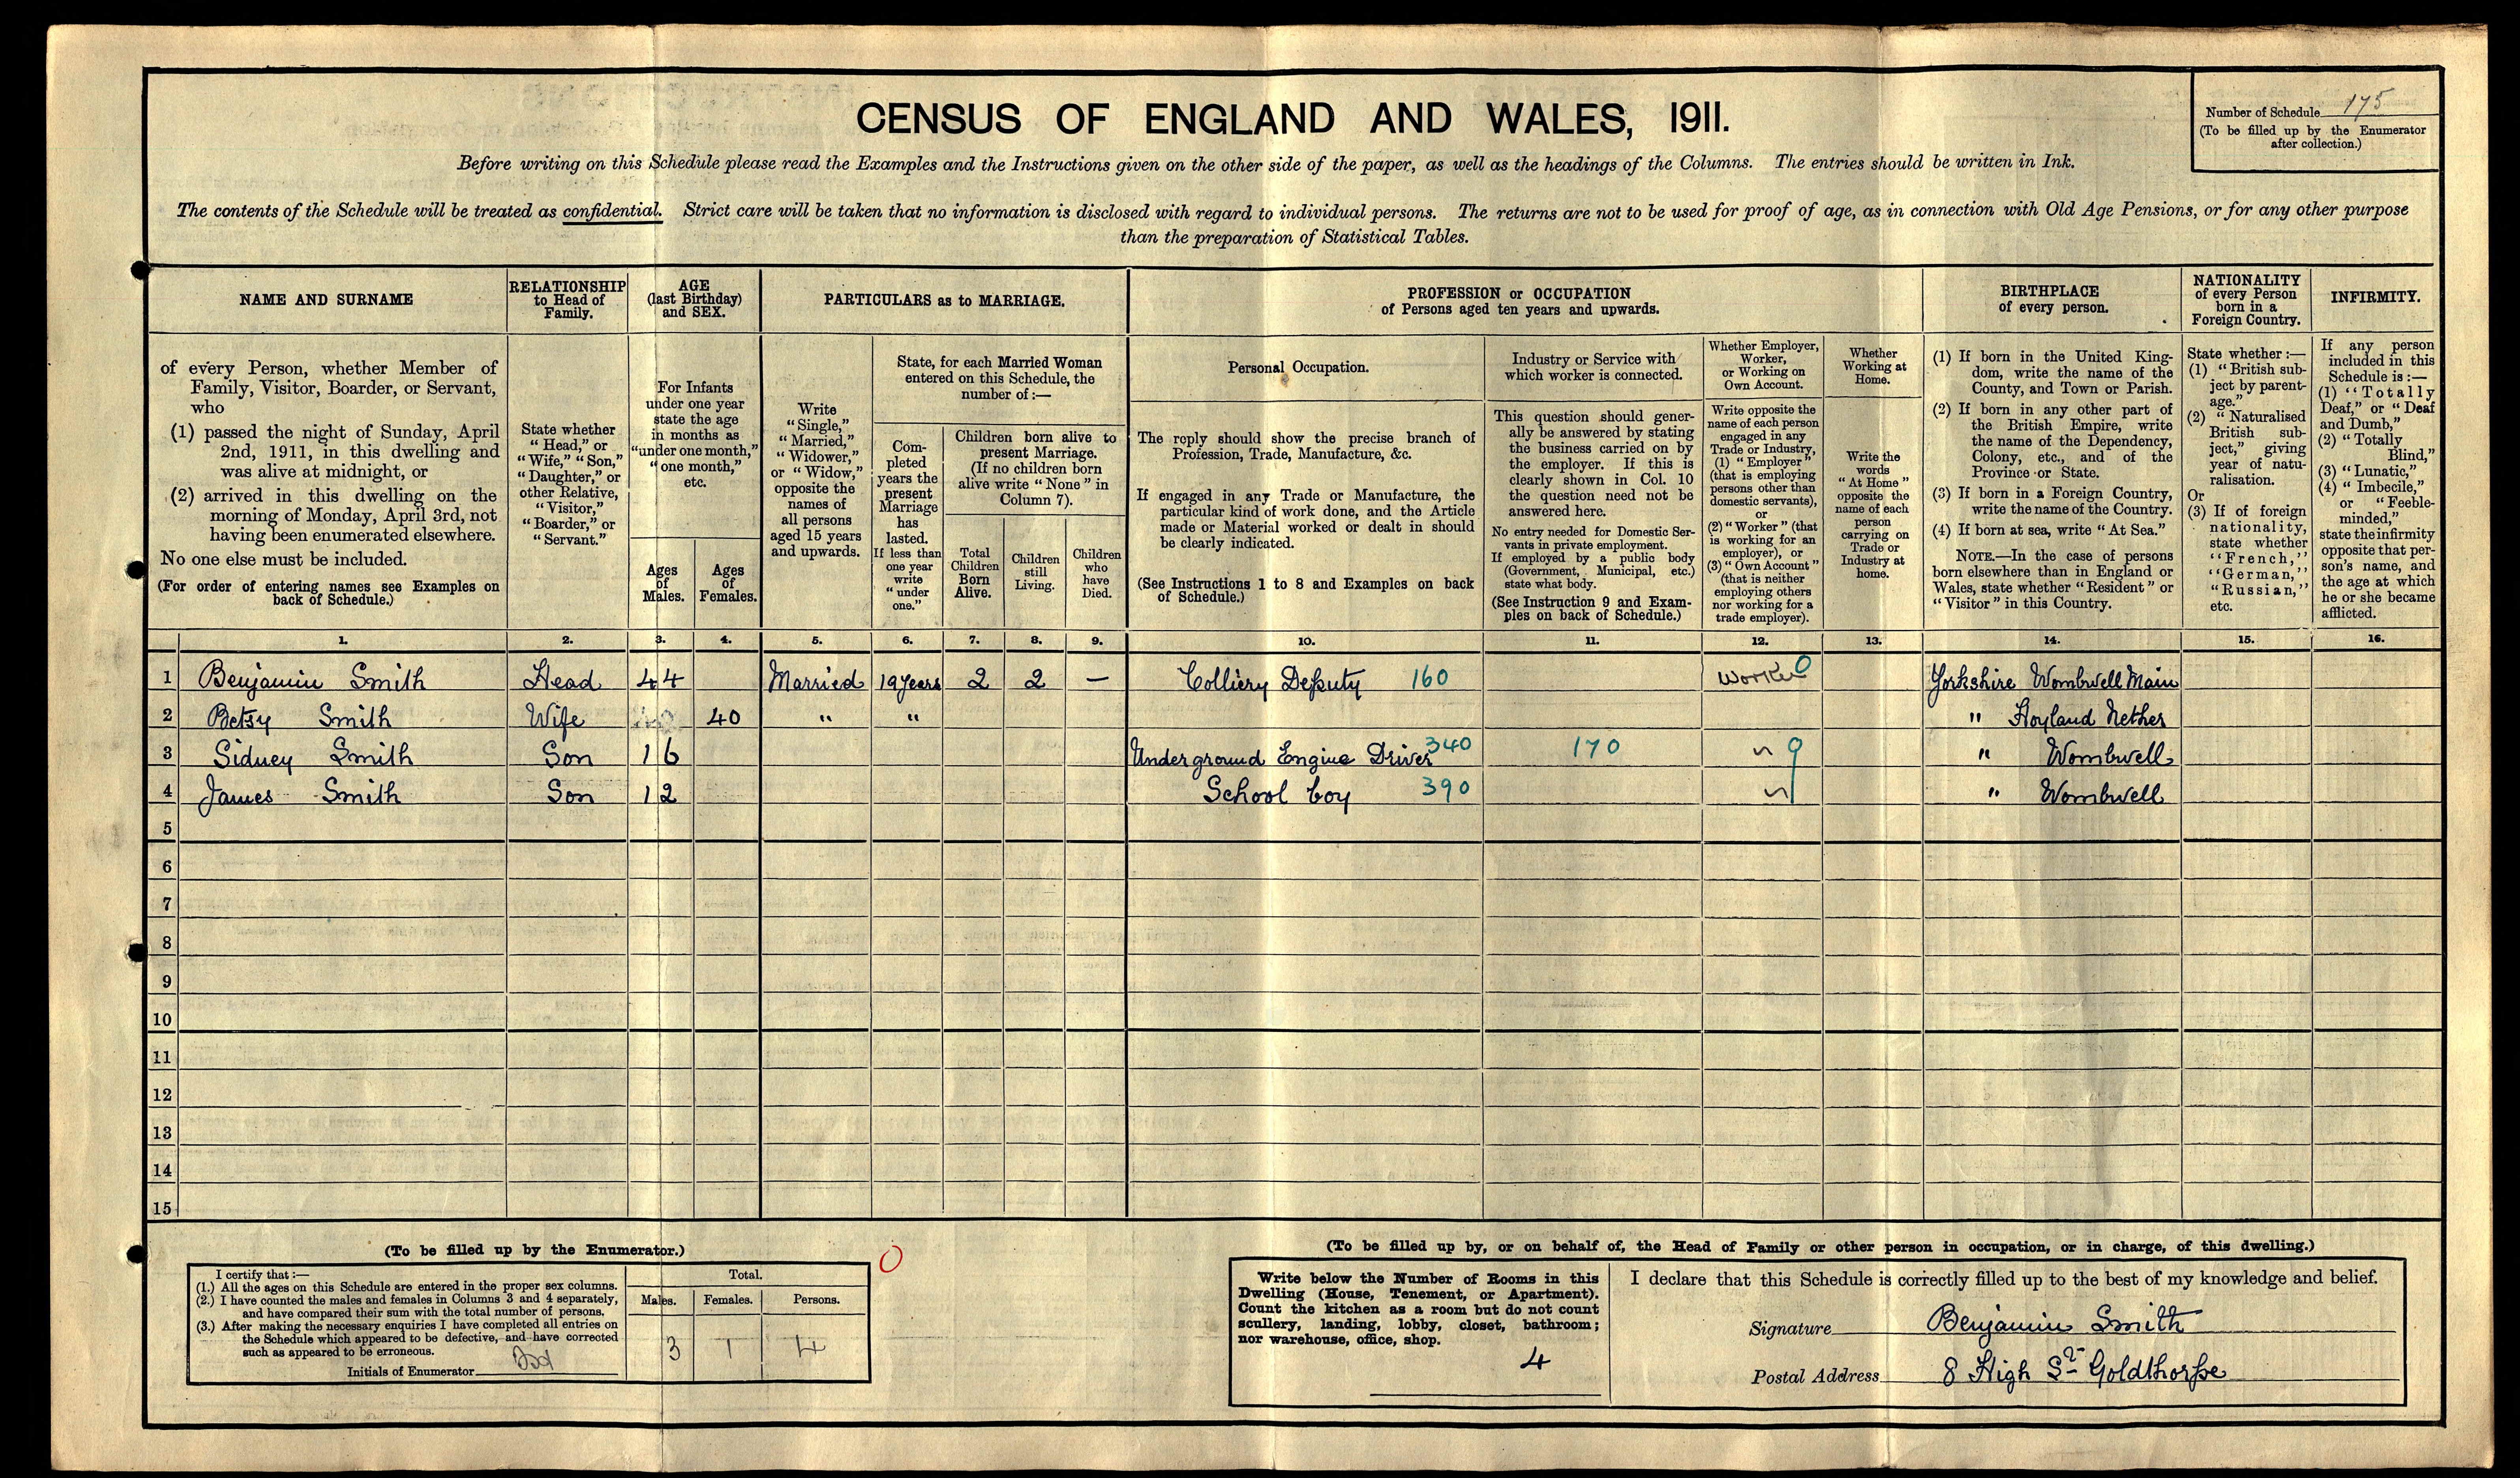 CENSUS OF ENGLAND AND WALES, 1911.
Number of Schedule 175
(To be filled up by the Enumerator
after collection.)
Before writing on this Schedule please read the Examples and the Instructions given on the other side of the paper, as well as the headings of the Columns. The entries should be written in Ink.
The contents of the Schedule will be treated as confidential. Strict care will be taken that no information is disclosed with regard to individual persons. The returns are not to be used for proof of age, as in connection with Old Age Pensions, or for any other purpose
than the preparation of Statistical Tables.
NAME AND SURNAME
of every Person, whether Member of
Family, Visitor, Boarder, or Servant,
who
(1) passed the night of Sunday, April
2nd, 1911, in this dwelling and
was alive at midnight, or
(2) arrived in this dwelling on the
morning of Monday, April 3rd, not
having been enumerated elsewhere.
No one else must be included.
(For order of entering names see Examples on
back of Schedule.)
RELATIONSHIP
to Head of
Family.
State whether
"Head," or
"Wife," "Son,"
"Daughter," or
other Relative,
"Visitor,"
"Boarder," or
"Servant."
AGE
(last Birthday)
and SEX.
For Infants
under one year
state the age
in months as
"under one month,"
"one month,"
etc.
Ages
of
Males.
Ages
of
Females.
PARTICULARS as to MARRIAGE.
Write
"Single,"
"Married,"
"Widower,"
or "Widow,"
opposite the
names of
all persons
aged 15 years
and upwards.
State, for each Married Woman
entered on this Schedule, the
number of:—
Com-
pleted
years the
present
Marriage
has
lasted.
If less than
one year
write
"under
one."
Children born alive to
present Marriage.
(If no children born
alive write "None" in
Column 7).
Total
Children
Born
Alive.
Children
still
Living.
Children
who
have
Died.
PROFESSION or OCCUPATION
of Persons aged ten years and upwards.
Personal Occupation.
The reply should show the precise branch of
Profession, Trade, Manufacture, &c.
If engaged in any Trade or Manufacture, the
particular kind of work done, and the Article
made or Material worked or dealt in should
be clearly indicated.
(See Instructions 1 to 8 and Examples on back
of Schedule.)
Industry or Service with
which worker is connected.
This question should gener-
ally be answered by stating
the business carried on by
the employer. If this is
clearly shown in Col. 10
the question need not be
answered here.
No entry needed for Domestic Ser-
vants in private employment.
If employed by a public body
(Government, Municipal, etc.)
state what body.
(See Instruction 9 and Exam-
ples on back of Schedule.)
Whether Employer,
Worker,
or Working on
Own Account.
Write opposite the
name of each person
engaged in any
Trade or Industry,
(1) "Employer"
(that is employing
persons other than
domestic servants),
or
(2) "Worker" (that
is working for an
employer), or
(3) "Own Account"
(that is neither
employing others
nor working for a
trade employer).
Whether
Working at
Home.
Write the
words
"At Home"
opposite the
name of each
person
carrying on
Trade or
Industry at
home.
BIRTHPLACE
of every person.
(1) If born in the United King-
dom, write the name of the
County, and Town or Parish.
(2) If born in any other part of
the British Empire, write
the name of the Dependency,
Colony, etc., and of the
Province or State.
(3) If born in a Foreign Country,
write the name of the Country.
(4) If born at sea, write "At Sea."
NOTE.—In the case of persons
born elsewhere than in England or
Wales, state whether "Resident" or
"Visitor" in this Country.
NATIONALITY
of every Person
born in a
Foreign Country.
State whether:—
(1) "British sub-
ject by parent-
age."
(2) "Naturalised
British sub-
ject," giving
year of natu-
ralisation.
Or
(3) If of foreign
nationality,
state whether
"French,"
"German,"
"Russian,"
etc.
INFIRMITY.
If any person
included in this
Schedule is:—
(1) "Totally
Deaf," or "Deaf
and Dumb,"
(2) "Totally
Blind,"
(3) "Lunatic,"
(4) "Imbecile,"
or "Feeble-
minded,"
state the infirmity
opposite that per-
son's name, and
the age at which
he or she became
afflicted.
1. 2. 3. 4. 5. 6. 7. 8. 9. 10. 11. 12. 13. 14. 15. 16.
1 Benjamin Smith Head 44 Married 19 Years 2 2 — Colliery Deputy 160 Worker 0 Yorkshire Wombwell Main
2 Betsy Smith Wife 40 " " " Hoyland Nether
3 Sidney Smith Son 16 Underground Engine Driver 340 170 " 9 " Wombwell
4 James Smith Son 12 School boy 390 " " Wombwell
5
6
7
8
9
10
11
12
13
14
15
(To be filled up by the Enumerator.)
I certify that:—
(1.) All the ages on this Schedule are entered in the proper sex columns.
(2.) I have counted the males and females in Columns 3 and 4 separately,
and have compared their sum with the total number of persons.
(3.) After making the necessary enquiries I have completed all entries on
the Schedule which appeared to be defective, and have corrected
such as appeared to be erroneous.
Initials of Enumerator
Total.
Males. Females. Persons.
3 1 4
0
(To be filled up by, or on behalf of, the Head of Family or other person in occupation, or in charge, of this dwelling.)
Write below the Number of Rooms in this
Dwelling (House, Tenement, or Apartment).
Count the kitchen as a room but do not count
scullery, landing, lobby, closet, bathroom;
nor warehouse, office, shop.
4
I declare that this Schedule is correctly filled up to the best of my knowledge and belief.
Signature Benjamin Smith
Postal Address 8 High St Goldthorpe